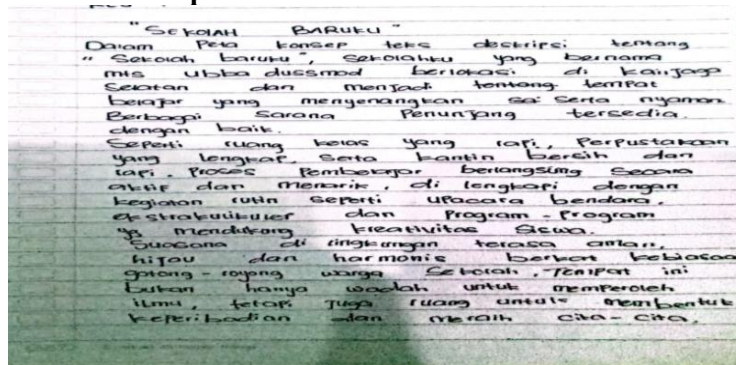 "SEKOLAH BARUKU"
Dalam Peta konsep teks deskripsi tentang
"Sekolah baruku", Sekolahku yang bernama
mis ubba dussmad berlokasi di kalijaga
Selatan dan menjadi tentang tempat
belajar yang menyenangkan Serta nyaman.
Berbagai Sarana Penunjang tersedia
dengan baik.
Seperti ruang kelas yang rapi, Perpustakaan
yang lengkap, Serta kantin bersih dan
rapi. Proses Pembelajar berlangsung Secara
aktif dan menarik, di lengkapi dengan
kegiatan rutin Seperti upacara bendara,
ekstrakulikuler dan Program-Program
yg mendukung kreativitas Siswa.
Suasana di lingkungan terasa aman,
hijau dan harmonis berkat kebiasaa
gotong-royong warga Sekolah. Tempat ini
bukan hanya wadah untuk memperoleh
ilmu, tetapi Juga ruang untuk membentuk
keperibadian dan meraih cita-cita.